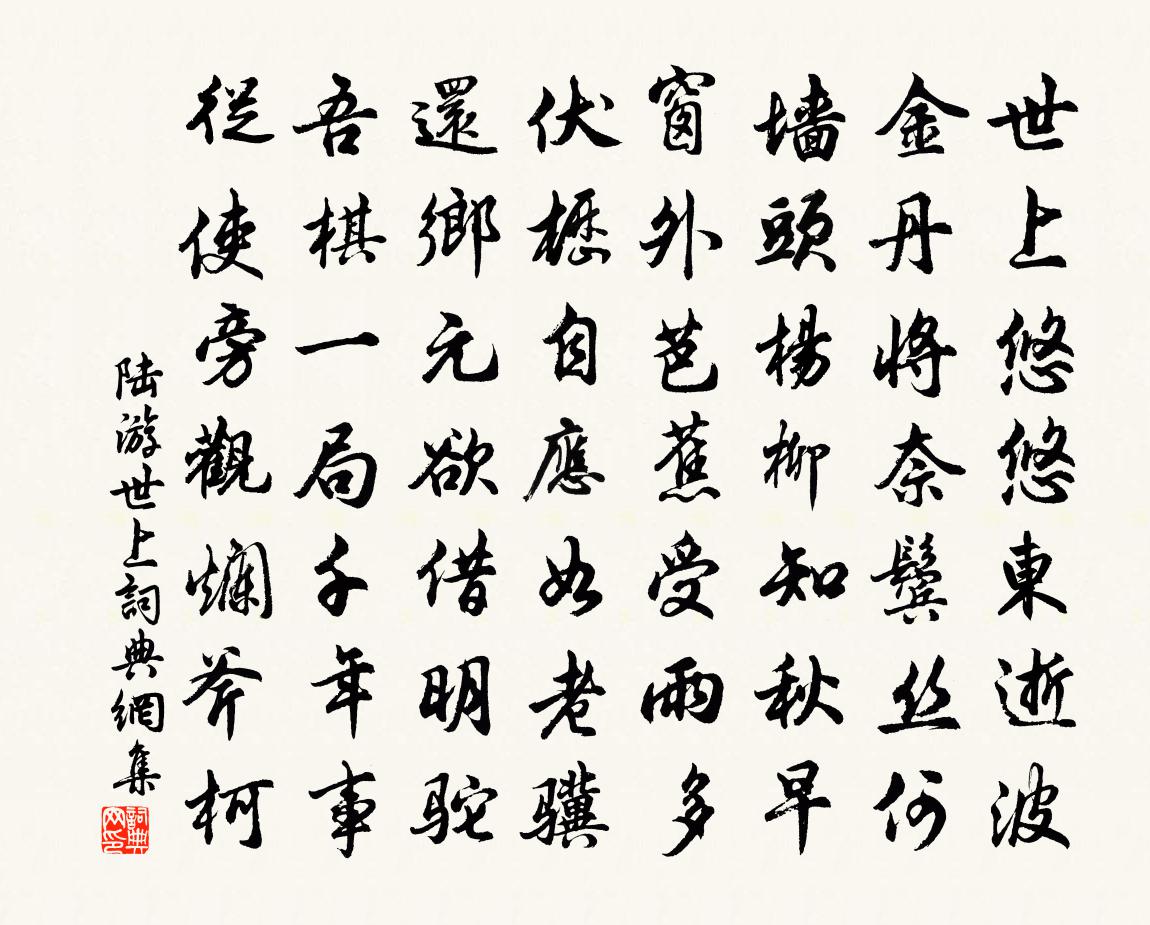 世上悠悠東逝波
金丹将奈鬓丝何
墙頭楊柳知秋早
窗外芭蕉受雨多
伏櫪自應如老骥
還鄉元欲借明驼
吾棋一局千年事
從使旁觀爛斧柯
陆游世上詞典網集
詞典网印